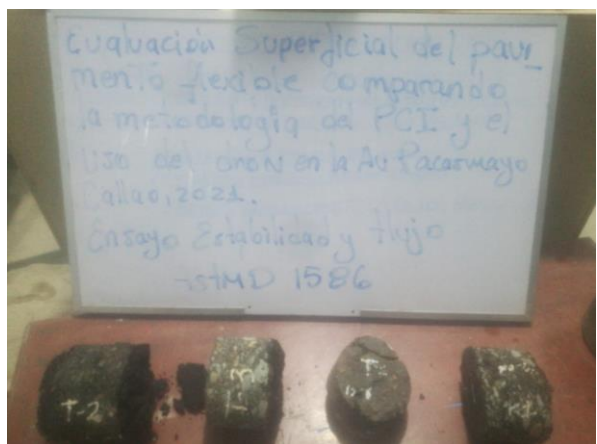 Evaluación Superficial del pavi_
mento flexible comparando
la metodología del PCI y el
Uso del dron en la Av Pacasmayo
Callao, 2021.
Ensayo Estabilidad y flujo
ASTMD 1586
T-2